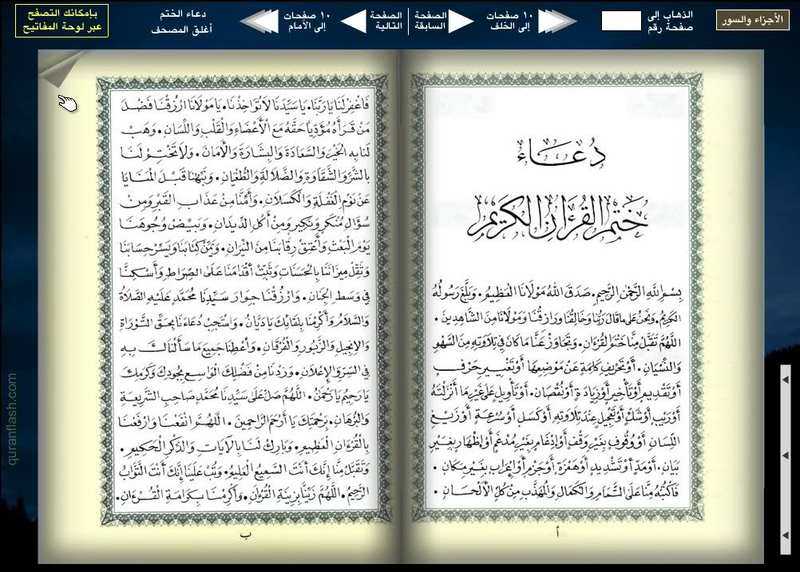 الأجزاء والسور
الذهاب إلى
صفحة رقم
١٠ صفحات
إلى الخلف
الصفحة
السابقة
الصفحة
التالية
١٠ صفحات
إلى الأمام
دعاء الختم
أغلق المصحف
بإمكانك التصفح
عبر لوحة المفاتيح
دُعَاءُ
خَتْمِ القُرْآنِ الكَرِيمِ
بِسْمِ اللهِ الرَّحْمٰنِ الرَّحِيمِ. صَدَقَ اللهُ مَوْلَانَا العَظِيمُ. وَبَلَّغَ رَسُولُهُ
الكَرِيمُ. وَنَحْنُ عَلَى مَا قَالَ رَبُّنَا وَخَالِقُنَا وَرَازِقُنَا وَمَوْلَانَا مِنَ الشَّاهِدِينَ.
اللَّهُمَّ تَقَبَّلْ مِنَّا خَتْمَ القُرْآنِ. وَتَجَاوَزْ عَنَّا مَا كَانَ فِي تِلَاوَتِهِ مِنَ السَّهْوِ
وَالنِّسْيَانِ. أَوْ تَحْرِيفِ كَلِمَةٍ عَنْ مَوْضِعِهَا أَوْ تَغْيِيرِ حَرْفٍ
أَوْ تَقْدِيمٍ أَوْ تَأْخِيرٍ أَوْ زِيَادَةٍ أَوْ نُقْصَانٍ. أَوْ تَأْوِيلٍ عَلَى غَيْرِ مَا أَنْزَلْتَهُ
أَوْ رَيْبٍ أَوْ شَكٍّ أَوْ تَعْجِيلٍ عِنْدَ تِلَاوَتِهِ أَوْ كَسَلٍ أَوْ سُرْعَةٍ أَوْ زَيْغِ
اللِّسَانِ أَوْ وُقُوفٍ بِغَيْرِ وَقْفٍ أَوْ إِدْغَامٍ بِغَيْرِ مُدْغَمٍ أَوْ إِظْهَارٍ بِغَيْرِ
بَيَانٍ. أَوْ مَدٍّ أَوْ تَشْدِيدٍ أَوْ هَمْزَةٍ أَوْ جَزْمٍ أَوْ إِعْرَابٍ بِغَيْرِ مَكَانٍ.
فَاكْتُبْهُ مِنَّا عَلَى التَّمَامِ وَالكَمَالِ وَالمُهَذَّبِ مِنْ كُلِّ الأَلْحَانِ.
أ
فَاغْفِرْ لَنَا يَا رَبَّنَا. يَا سَيِّدَنَا لَا تُؤَاخِذْنَا. يَا مَوْلَانَا ارْزُقْنَا فَضْلَ
مَنْ قَرَأَهُ مُؤَدِّيًا حَقَّهُ مَعَ الأَعْضَاءِ وَالقَلْبِ وَاللِّسَانِ. وَهَبْ
لَنَا بِهِ الخَيْرَ وَالسَّعَادَةَ وَالبِشَارَةَ وَالأَمَانَ. وَلَا تَخْتِمْ لَنَا
بِالشَّرِّ وَالشَّقَاوَةِ وَالضَّلَالَةِ وَالطُّغْيَانِ. وَنَبِّهْنَا قَبْلَ المَنَايَا
عَنْ نَوْمِ الغَفْلَةِ وَالكَسَلَانِ. وَأَمِّنَّا مِنْ عَذَابِ القَبْرِ وَمِنْ
سُؤَالِ مُنْكَرٍ وَنَكِيرٍ وَمِنْ أَكْلِ الدِّيدَانِ. وَبَيِّضْ وُجُوهَنَا
يَوْمَ البَعْثِ وَأَعْتِقْ رِقَابَنَا مِنَ النِّيرَانِ. وَيَمِّنْ كِتَابَنَا وَيَسِّرْ حِسَابَنَا
وَثَقِّلْ مِيزَانَنَا بِالحَسَنَاتِ وَثَبِّتْ أَقْدَامَنَا عَلَى الصِّرَاطِ وَأَسْكِنَّا
فِي وَسَطِ الجِنَانِ. وَارْزُقْنَا جِوَارَ سَيِّدِنَا مُحَمَّدٍ عَلَيْهِ الصَّلَاةُ
وَالسَّلَامُ وَأَكْرِمْنَا بِلِقَائِكَ يَا دَيَّانُ. وَاسْتَجِبْ دُعَاءَنَا بِحَقِّ التَّوْرَاةِ
وَالإِنْجِيلِ وَالزَّبُورِ وَالفُرْقَانِ. وَأَعْطِنَا جَمِيعَ مَا سَأَلْنَاكَ بِهِ
فِي السِّرِّ وَالإِعْلَانِ. وَزِدْنَا مِنْ فَضْلِكَ الوَاسِعِ بِجُودِكَ وَكَرَمِكَ
يَا رَحِيمُ يَا رَحْمٰنُ. اللَّهُمَّ صَلِّ عَلَى سَيِّدِنَا مُحَمَّدٍ صَاحِبِ الشَّرِيعَةِ
وَالبُرْهَانِ. بِرَحْمَتِكَ يَا أَرْحَمَ الرَّاحِمِينَ. اللَّهُمَّ انْفَعْنَا وَارْفَعْنَا
بِالقُرْآنِ العَظِيمِ. وَبَارِكْ لَنَا بِالآيَاتِ وَالذِّكْرِ الحَكِيمِ.
وَتَقَبَّلْ مِنَّا إِنَّكَ أَنْتَ السَّمِيعُ العَلِيمُ. وَتُبْ عَلَيْنَا إِنَّكَ أَنْتَ التَّوَّابُ
الرَّحِيمُ. اللَّهُمَّ زَيِّنَّا بِزِينَةِ القُرْآنِ. وَأَكْرِمْنَا بِكَرَامَةِ القُرْآنِ.
ب
quranflash.com